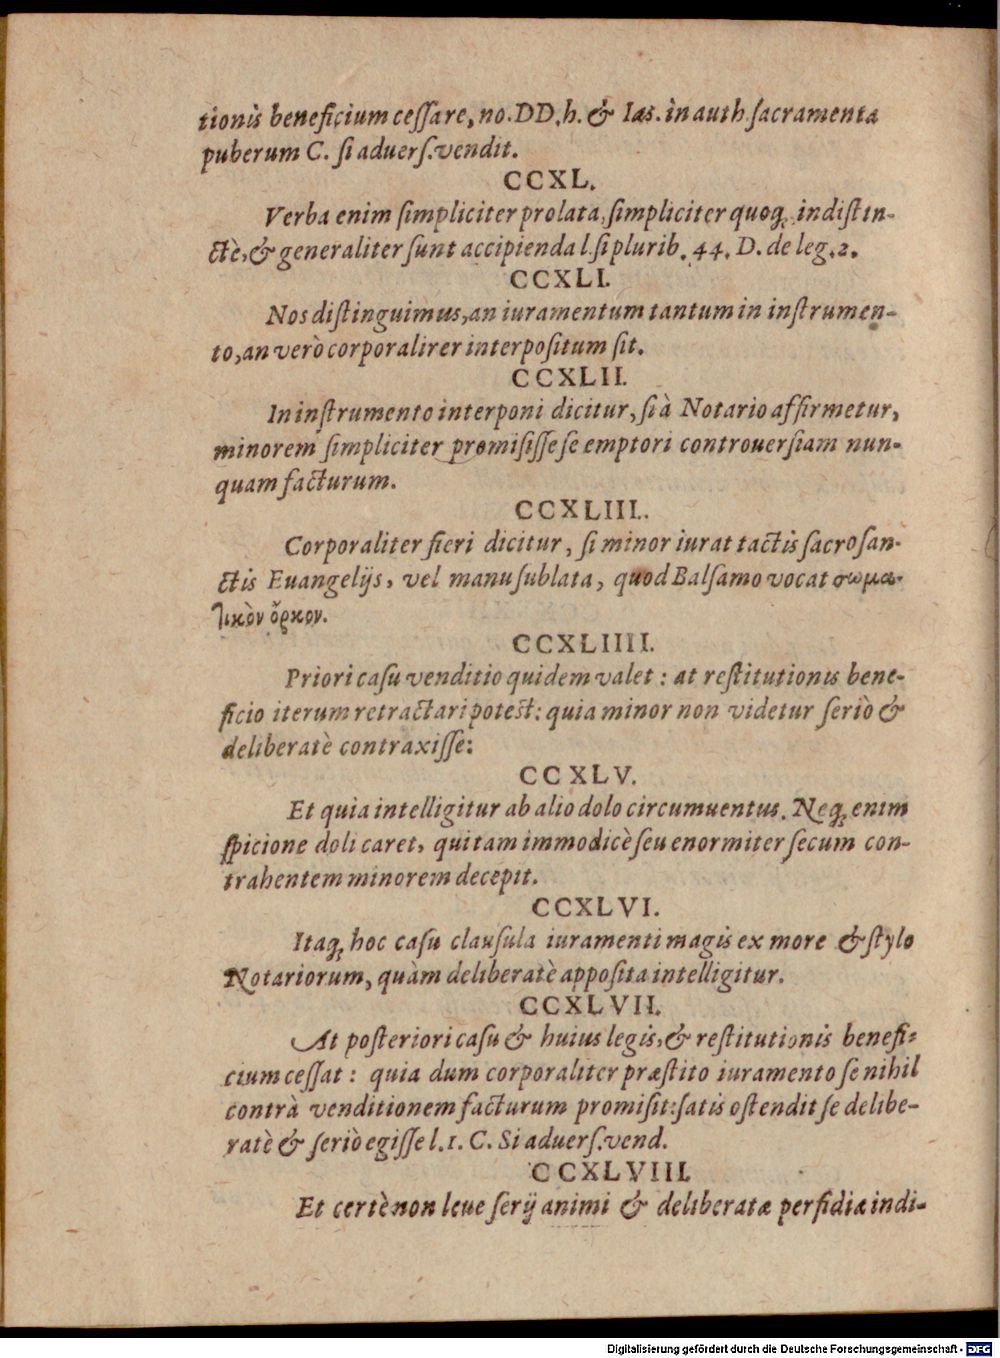 tionis beneficium cessare, no. DD. h. & Ias. in auth. sacramenta
puberum C. si aduers. vendit.
CCXL.
Verba enim simpliciter prolata, simpliciter quoq; indistin-
ctè, & generaliter sunt accipienda l. si plurib. 44. D. de leg. 2.
CCXLI.
Nos distinguimus, an iuramentum tantum in instrumen-
to, an verò corporalirer interpositum sit.
CCXLII.
In instrumento interponi dicitur, si à Notario affirmetur,
minorem simpliciter promisisse se emptori controuersiam nun-
quam facturum.
CCXLIII.
Corporaliter fieri dicitur, si minor iurat tactis sacrosan-
ctis Euangelijs, vel manu sublata, quod Balsamo vocat σωμα-
τικὸν ὅρκον.
CCXLIIII.
Priori casu venditio quidem valet: at restitutionis bene-
ficio iterum retractari potest: quia minor non videtur seriò &
deliberatè contraxisse:
CCXLV.
Et quia intelligitur ab alio dolo circumuentus. Neq; enim
spicione doli caret, qui tam immodicè seu enormiter secum con-
trahentem minorem decepit.
CCXLVI.
Itaq; hoc casu clausula iuramenti magis ex more & stylo
Notariorum, quàm deliberatè apposita intelligitur.
CCXLVII.
At posteriori casu & huius legis, & restitutionis benefi-
cium cessat: quia dum corporaliter præstito iuramento se nihil
contrà venditionem facturum promisit: satis ostendit se delibe-
ratè & seriò egisse l. 1. C. Si aduers. vend.
CCXLVIII.
Et certè non leue serij animi & deliberatæ perfidiæ indi-
Digitalisierung gefördert durch die Deutsche Forschungsgemeinschaft - DFG